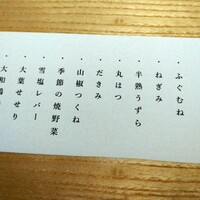 ・ふぐむね
・ねぎみ
・半熟うずら
・丸はつ
・だきみ
・山椒つくね
・季節の焼野菜
・雪塩レバー
・大葉せせり
・大和